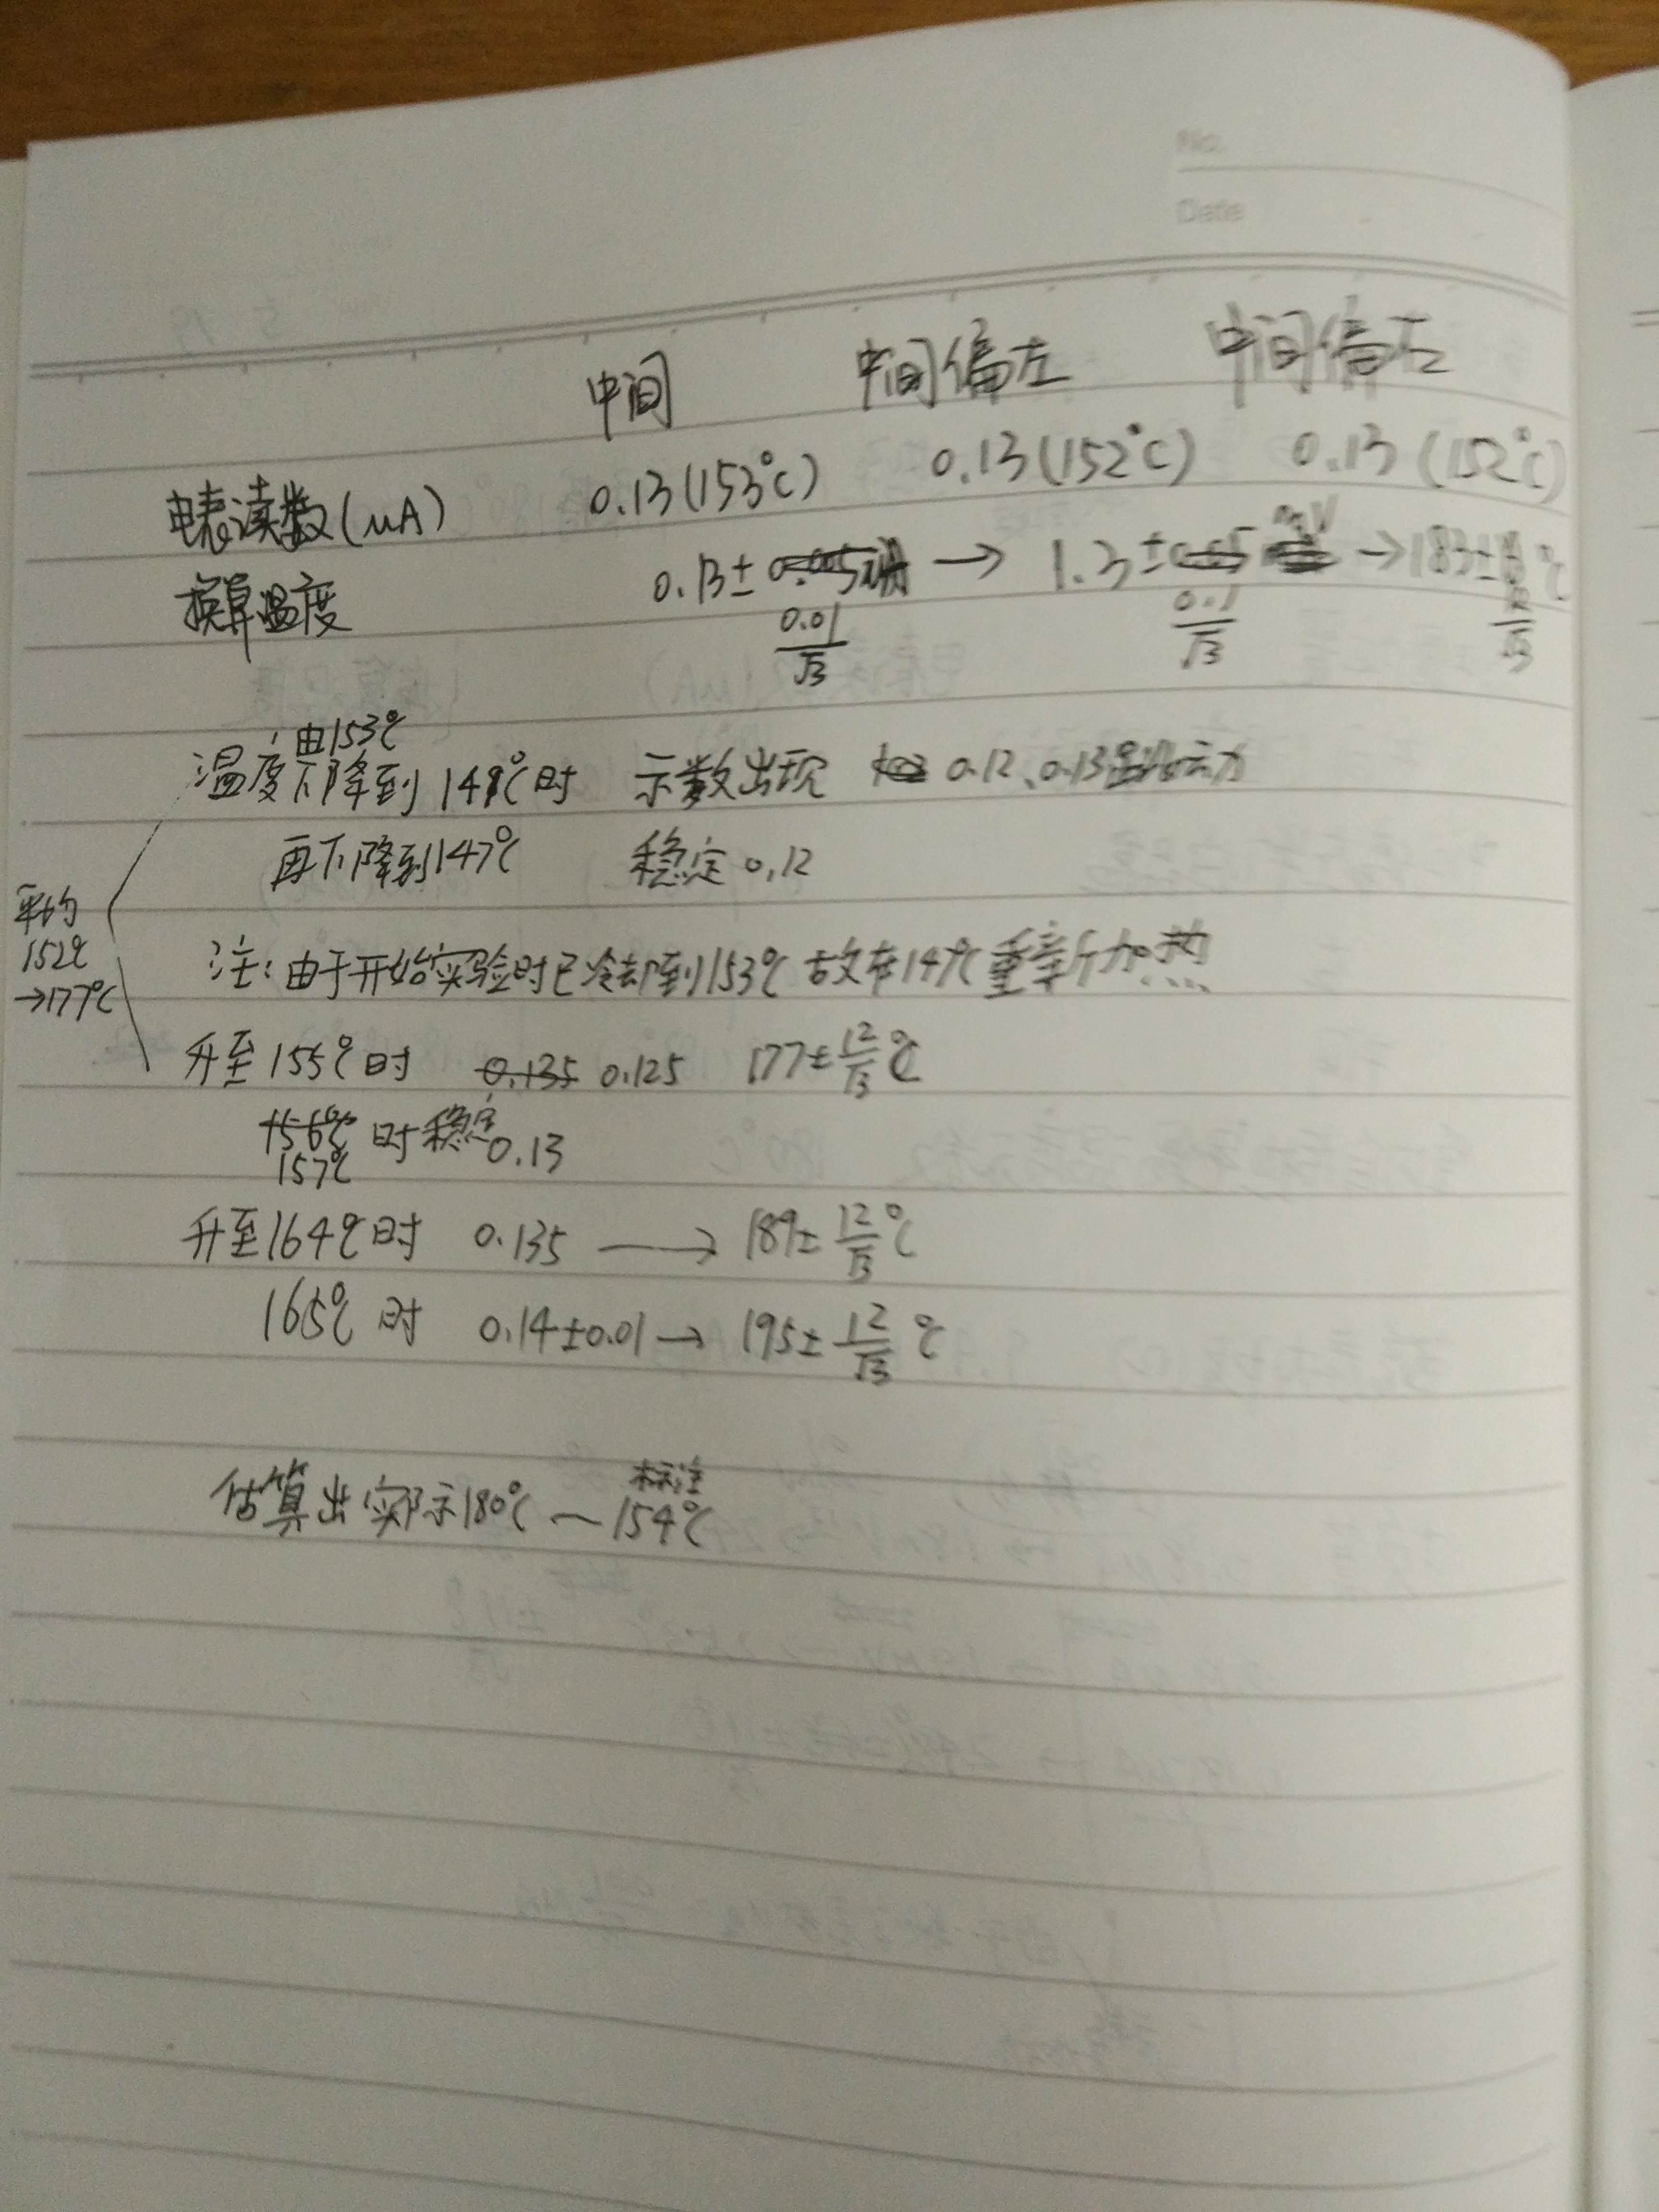 No.
Date
中间 中间偏左 中间偏右
电表读数(μA) 0.13(153℃) 0.13(152℃) 0.13(152℃)
换算温度 0.13±0.01/√3 → 1.3±0.1/√3 mV → 183±12/√3 ℃
温度由153℃下降到149℃时 示数出现 0.12、0.13
再下降到147℃ 稳定 0.12
平均
152℃
→177℃
注:由于开始实验时已冷却到153℃ 故在147℃重新加热
升至155℃时 0.135 0.125 177±12/√3 ℃
156℃ 时稳定 0.13
157℃
升至164℃时 0.135 → 189±12/√3 ℃
165℃时 0.14±0.01 → 195±12/√3 ℃
估算出实际示180℃ — 标注154℃